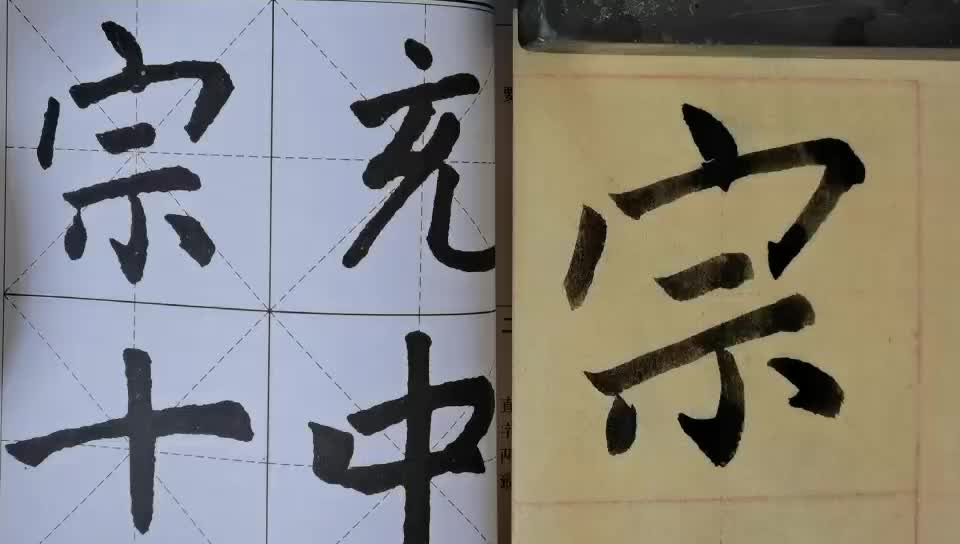 宗 充 宗
十 中